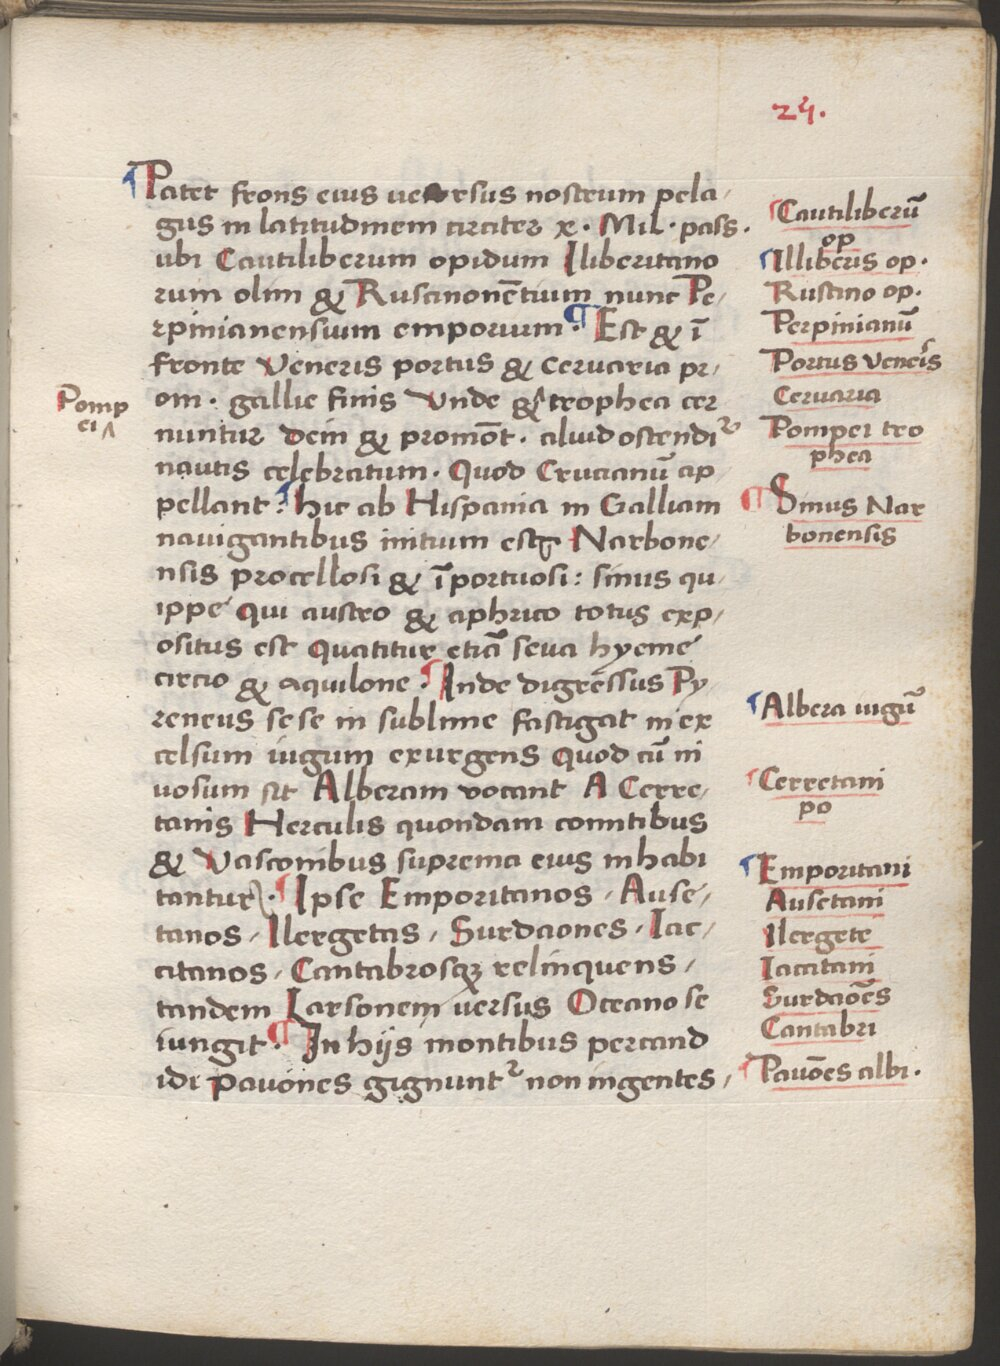 24.
¶Patet frons eius ue rsus nostrum pela,
gus in latitudinem circiter x. Mil. pass.
ubi Cautiliberum opidum Iliberitano
rum olim & Ruscinonētium nunc Pe,
rpinianensium emporium. ¶ Est & ī
fronte Veneris portus & Ceruaria pr,
om. gallie finis Vnde & trophea cer
Pomp
ei
nuntur Dein & promōt. aliud ostendiť
nautis celebratum. Quod Crucianū ap
pellant: ¶ hic ab Hispania in Galliam
nauigantibus initium est Narbone,
nsis procellosi & īportuosi: sinus qu,
ippe qui austro & aphrico totus exp,
ositus est Quatitur etiā seua hyeme
circio & aquilone. ¶ Inde digressus Py,
reneus sese in sublime fastigat in ex
celsum iugum exurgens Quod cū ni
uosum sit Alberam vocant A Cerre,
tanis Herculis quondam comitibus
& Vasconibus suprema eius inhabi
tantur. ¶ Ipse Emporitanos, Ause,
tanos, Ilergetas, Surdaones, Iac,
citanos, Cantabrosqꝫ relinquens,
tandem Larsonem versus Oceano se
iungit. ¶ In hijs montibus percand
idi pauones gignuntᷣ non ingentes,
¶Cautiliberū
op
¶Illiberis op.
Ruscino op.
Perpinianū
Portus Veneris
Ceruaria
Pompei tro
phea
¶ Sinus Nar
bonensis
¶Albera iugū
¶Cerretani
po
¶Emporitani
Ausetani
Ilergete
Iaccitani
Surdaōes
Cantabri
¶Pauōes albi.